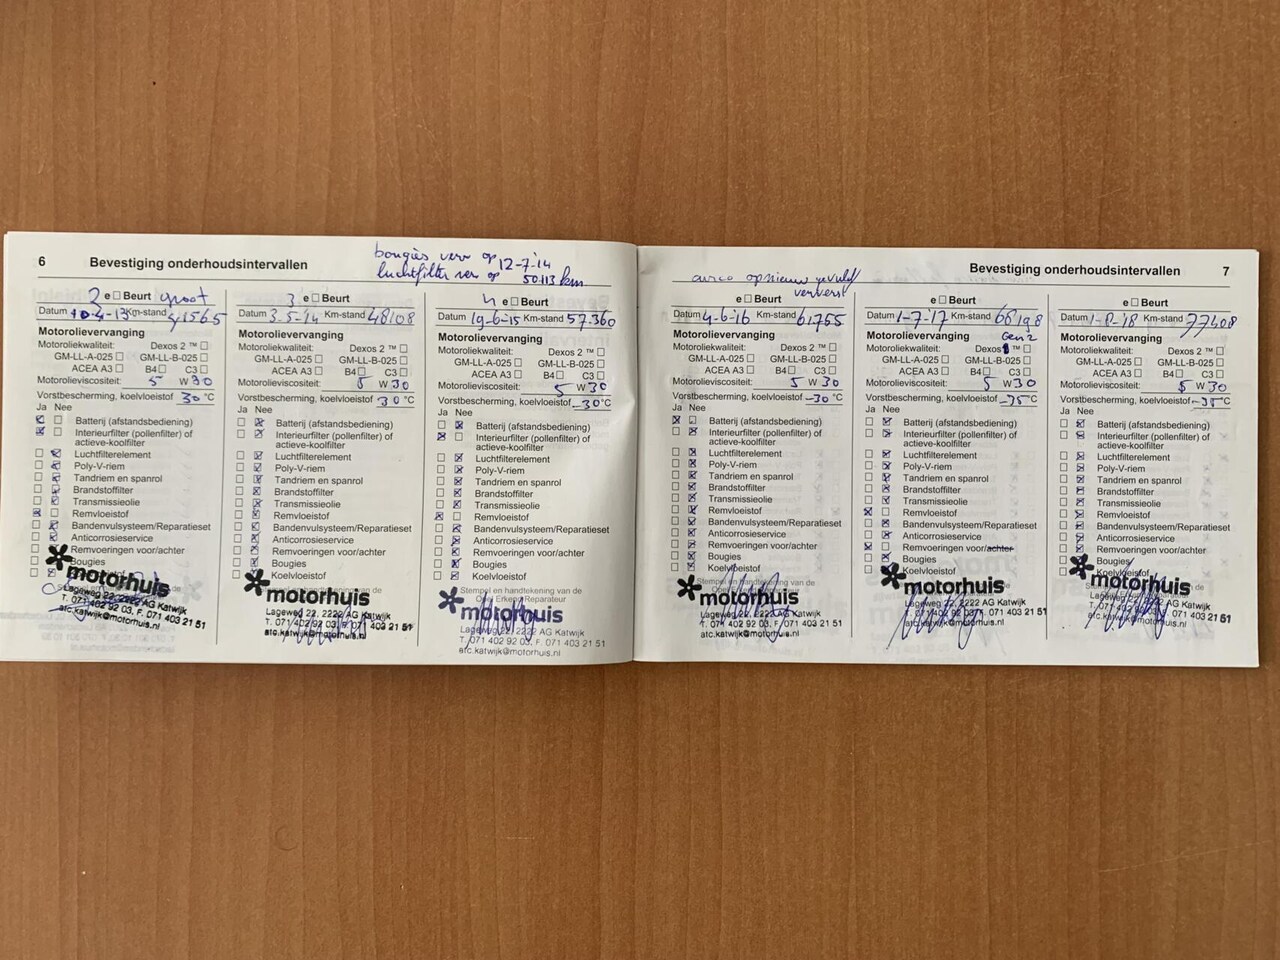 6 Bevestiging onderhoudsintervallen
bougies verv op 12-7-'14
luchtfilter verv op 50113 km.
2 e Beurt groot
Datum 10-4-13 Km-stand 41565
Motorolievervanging
Motoroliekwaliteit: Dexos 2 ™
GM-LL-A-025 GM-LL-B-025
ACEA A3 B4 C3
Motorolieviscositeit: 5 W 30
Vorstbescherming, koelvloeistof 30 °C
Ja Nee
Batterij (afstandsbediening)
Interieurfilter (pollenfilter) of
actieve-koolfilter
Luchtfilterelement
Poly-V-riem
Tandriem en spanrol
Brandstoffilter
Transmissieolie
Remvloeistof
Bandenvulsysteem/Reparatieset
Anticorrosieservice
Remvoeringen voor/achter
Bougies
motorhuis
Lageweg 22, 2222 AG Katwijk
T. 071 402 92 03, F. 071 403 21 51
afc.katwijk@motorhuis.nl
3 e Beurt
Datum 3-5-14 Km-stand 48108
Motorolievervanging
Motoroliekwaliteit: Dexos 2 ™
GM-LL-A-025 GM-LL-B-025
ACEA A3 B4 C3
Motorolieviscositeit: 5 W 30
Vorstbescherming, koelvloeistof 30 °C
Ja Nee
Batterij (afstandsbediening)
Interieurfilter (pollenfilter) of
actieve-koolfilter
Luchtfilterelement
Poly-V-riem
Tandriem en spanrol
Brandstoffilter
Transmissieolie
Remvloeistof
Bandenvulsysteem/Reparatieset
Anticorrosieservice
Remvoeringen voor/achter
Bougies
Koelvloeistof
motorhuis
Lageweg 22, 2222 AG Katwijk
T. 071 402 92 03, F. 071 403 21 51
afc.katwijk@motorhuis.nl
4 e Beurt
Datum 19-6-15 Km-stand 57.360
Motorolievervanging
Motoroliekwaliteit: Dexos 2 ™
GM-LL-A-025 GM-LL-B-025
ACEA A3 B4 C3
Motorolieviscositeit: 5 W 30
Vorstbescherming, koelvloeistof -30 °C
Ja Nee
Batterij (afstandsbediening)
Interieurfilter (pollenfilter) of
actieve-koolfilter
Luchtfilterelement
Poly-V-riem
Tandriem en spanrol
Brandstoffilter
Transmissieolie
Remvloeistof
Bandenvulsysteem/Reparatieset
Anticorrosieservice
Remvoeringen voor/achter
Bougies
Koelvloeistof
Stempel en handtekening van de
Opel Erkend Reparateur
motorhuis
Lageweg 22, 2222 AG Katwijk
T. 071 402 92 03, F. 071 403 21 51
afc.katwijk@motorhuis.nl
Bevestiging onderhoudsintervallen 7
airco opnieuw gevuld/
ververst
e Beurt
Datum 4-6-16 Km-stand 61755
Motorolievervanging
Motoroliekwaliteit: Dexos 2 ™
GM-LL-A-025 GM-LL-B-025
ACEA A3 B4 C3
Motorolieviscositeit: 5 W 30
Vorstbescherming, koelvloeistof -30 °C
Ja Nee
Batterij (afstandsbediening)
Interieurfilter (pollenfilter) of
actieve-koolfilter
Luchtfilterelement
Poly-V-riem
Tandriem en spanrol
Brandstoffilter
Transmissieolie
Remvloeistof
Bandenvulsysteem/Reparatieset
Anticorrosieservice
Remvoeringen voor/achter
Bougies
Koelvloeistof
Stempel en handtekening van de
motorhuis
Lageweg 22, 2222 AG Katwijk
T. 071 402 92 03, F. 071 403 21 51
afc.katwijk@motorhuis.nl
e Beurt
Datum 1-7-'17 Km-stand 66198
Motorolievervanging Gen 2
Motoroliekwaliteit: Dexos 1 ™
GM-LL-A-025 GM-LL-B-025
ACEA A3 B4 C3
Motorolieviscositeit: 5 W 30
Vorstbescherming, koelvloeistof -35 °C
Ja Nee
Batterij (afstandsbediening)
Interieurfilter (pollenfilter) of
actieve-koolfilter
Luchtfilterelement
Poly-V-riem
Tandriem en spanrol
Brandstoffilter
Transmissieolie
Remvloeistof
Bandenvulsysteem/Reparatieset
Anticorrosieservice
Remvoeringen voor/achter
Bougies
Koelvloeistof
motorhuis
Lageweg 22, 2222 AG Katwijk
T. 071 402 92 03, F. 071 403 21 51
afc.katwijk@motorhuis.nl
e Beurt
Datum 1-8-'18 Km-stand 77408
Motorolievervanging
Motoroliekwaliteit: Dexos 2 ™
GM-LL-A-025 GM-LL-B-025
ACEA A3 B4 C3
Motorolieviscositeit: 5 W 30
Vorstbescherming, koelvloeistof -35 °C
Ja Nee
Batterij (afstandsbediening)
Interieurfilter (pollenfilter) of
actieve-koolfilter
Luchtfilterelement
Poly-V-riem
Tandriem en spanrol
Brandstoffilter
Transmissieolie
Remvloeistof
Bandenvulsysteem/Reparatieset
Anticorrosieservice
Remvoeringen voor/achter
Bougies
Koelvloeistof
motorhuis
Lageweg 22, 2222 AG Katwijk
T. 071 402 92 03, F. 071 403 21 51
afc.katwijk@motorhuis.nl